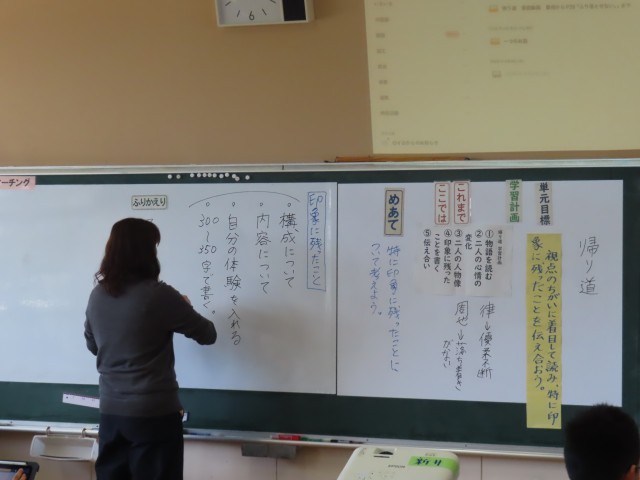 帰り道
単元目標
視点のちがいに着目して読み、特に印
象に残ったことを伝え合おう。
学習計画
①物語を読む
②二人の心情の
変化
③二人の人物像
④印象に残った
ことを書く
⑤伝え合い
これまで
ここでは
律→優柔不断
周也→落ち着きがない
めあて
特に印象に残ったことに
ついて考えよう。
印象に残ったこと
構成について
内容について
自分の体験を入れる
300~350字で書く。
ふりかえり
ーチング
6